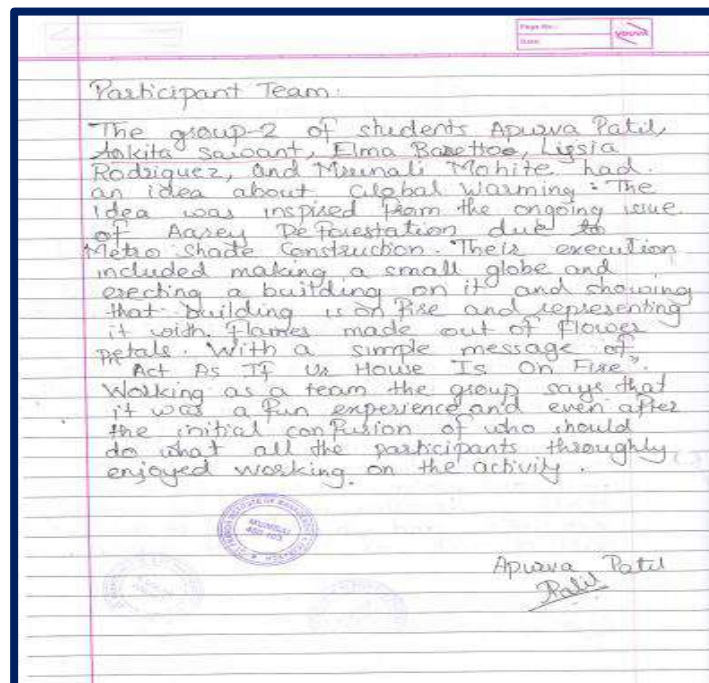 Page No.:
Date:
YOUVA
Participant Team:
The group-2 of students Apurva Patil,
Ankita Sawant, Elma Barettoo, Ligsia
Rodriguez, and Mrunali Mohite had
an idea about Global Warming: The
idea was inspired from the ongoing issue
of Aarey Deforestation due to
Metro Shade Construction. Their execution
included making a small globe and
erecting a building on it and showing
that building is on fire and representing
it with flames made out of flower
petals. With a simple message of
"Act As If Ur House Is On Fire".
Working as a team the group says that
it was a fun experience and even after
the initial confusion of who should
do what all the participants throughly
enjoyed working on the activity.
MUMBAI
400 103
Apurva Patil
Patil